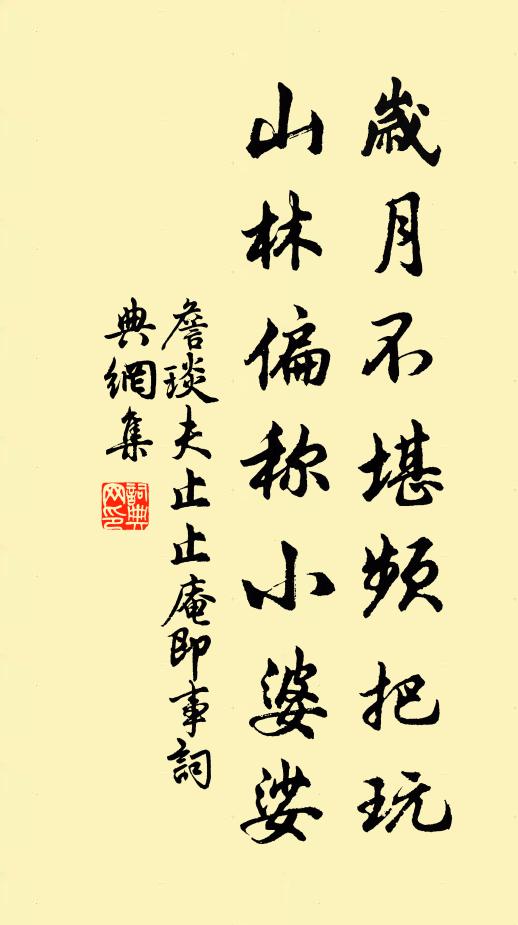 歲月不堪頻把玩
山林偏称小婆娑
詹琰夫止止庵即事詞
典網集
詞典
网印